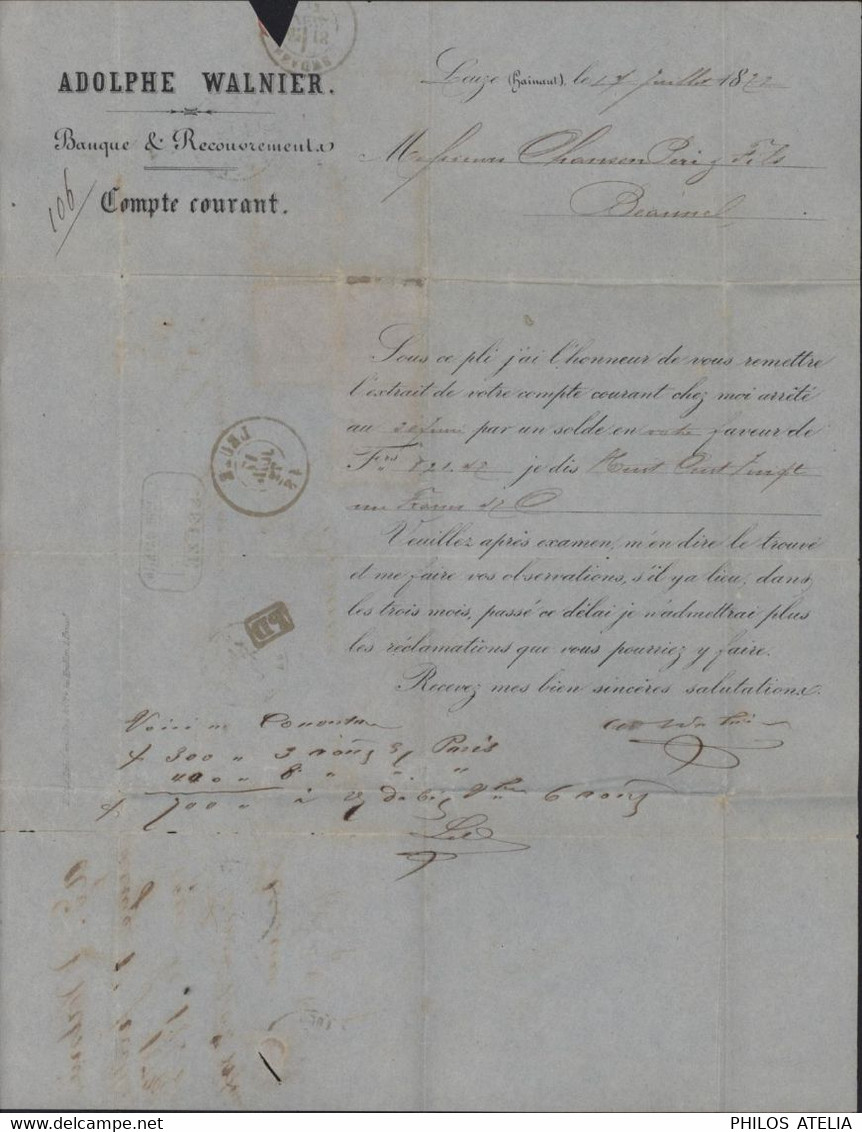 ADOLPHE WALNIER.
Banque & Recouvrements
Compte courant.
106
Leuze (Hainaut), le 17 Juillet 1872
Messieurs Chanson Père & Fils
Beaune
Sous ce pli j'ai l'honneur de vous remettre
l'extrait de votre compte courant chez moi arrêté
au Juin par un solde en votre faveur de
Frs 821.42 je dis Huit Cent Vingt
un Francs 42 C
Veuillez après examen, m'en dire le trouvé
et me faire vos observations, s'il y a lieu, dans
les trois mois, passé ce délai je n'admettrai plus
les réclamations que vous pourriez y faire.
Recevez mes bien sincères salutations.
LEUZE
PD
Voici en Couverture
300 " 3 août Paris
400 " 8 " " "
700 " à 6 août
PHILOS ATELIA